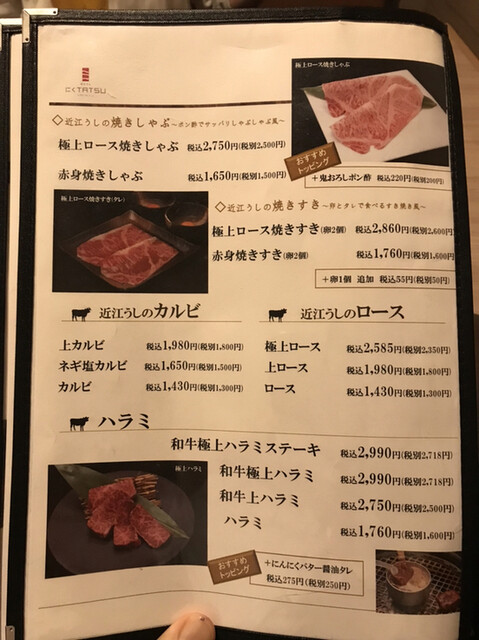 にくTATSU
極上ロース焼きしゃぶ
◇近江うしの焼きしゃぶ～ポン酢でサッパリしゃぶしゃぶ風～
極上ロース焼きしゃぶ 税込2,750円(税別2,500円)
赤身焼きしゃぶ 税込1,650円(税別1,500円)
おすすめ
トッピング
+鬼おろしポン酢 税込220円(税別200円)
極上ロース焼きすき(タレ)
◇近江うしの焼きすき～卵とタレで食べるすき焼き風～
極上ロース焼きすき(卵2個) 税込2,860円(税別2,600円)
赤身焼きすき(卵2個) 税込1,760円(税別1,600円)
+卵1個 追加 税込55円(税別50円)
近江うしのカルビ
上カルビ 税込1,980円(税別1,800円)
ネギ塩カルビ 税込1,650円(税別1,500円)
カルビ 税込1,430円(税別1,300円)
近江うしのロース
極上ロース 税込2,585円(税別2,350円)
上ロース 税込1,980円(税別1,800円)
ロース 税込1,430円(税別1,300円)
ハラミ
和牛極上ハラミステーキ 税込2,990円(税別2,718円)
和牛極上ハラミ 税込2,990円(税別2,718円)
和牛上ハラミ 税込2,750円(税別2,500円)
ハラミ 税込1,760円(税別1,600円)
極上ハラミ
おすすめ
トッピング
+にんにくバター醤油タレ
税込275円(税別250円)